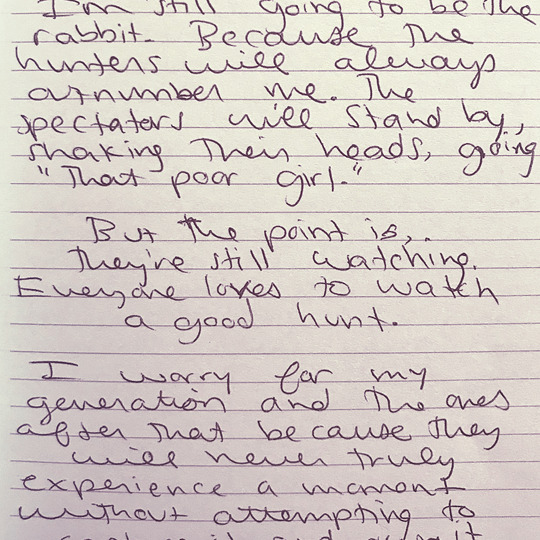 I'm still going to be the
rabbit. Because the
hunters will always
outnumber me. The
spectators will stand by,
shaking their heads, going
"That poor girl."
But the point is,
they're still watching.
Everyone loves to watch
a good hunt.
I worry for my
generation and the ones
after that because they
will never truly
experience a moment
without attempting to